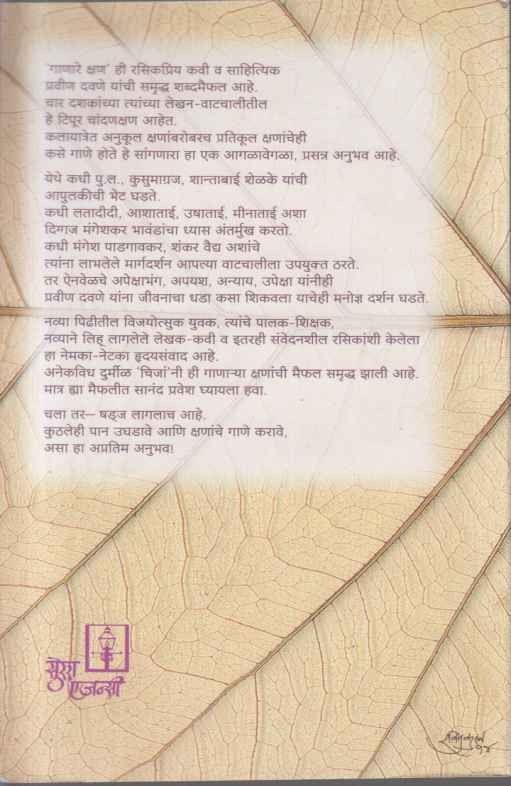 'गाणारे क्षण' ही रसिकप्रिय कवी व साहित्यिक
प्रवीण दवणे यांची समृद्ध शब्दमैफल आहे.
चार दशकांच्या त्यांच्या लेखन-वाटचालीतील
हे टिपूर चांदणक्षण आहेत.
कलायात्रेत अनुकूल क्षणांबरोबरच प्रतिकूल क्षणांचेही
कसे गाणे होते हे सांगणारा हा एक आगळावेगळा, प्रसन्न अनुभव आहे.
येथे कधी पु.ल., कुसुमाग्रज, शान्ताबाई शेळके यांची
आपुलकीची भेट घडते.
कधी लतादीदी, आशाताई, उषाताई, मीनाताई अशा
दिग्गज मंगेशकर भावंडांचा ध्यास अंतर्मुख करतो.
कधी मंगेश पाडगावकर, शंकर वैद्य अशांचे
त्यांना लाभलेले मार्गदर्शन आपल्या वाटचालीला उपयुक्त ठरते.
तर ऐनवेळचे अपेक्षाभंग, अपयश, अन्याय, उपेक्षा यांनीही
प्रवीण दवणे यांना जीवनाचा धडा कसा शिकवला याचेही मनोज्ञ दर्शन घडते.
नव्या पिढीतील विजयोत्सुक युवक, त्यांचे पालक-शिक्षक,
नव्याने लिहू लागलेले लेखक-कवी व इतरही संवेदनशील रसिकांशी केलेला
हा नेमका-नेटका हृदयसंवाद आहे.
अनेकविध दुर्मीळ 'चिजां'नी ही गाणाऱ्या क्षणांची मैफल समृद्ध झाली आहे.
मात्र ह्या मैफलीत सानंद प्रवेश घ्यायला हवा.
चला तर– षड्ज लागलाच आहे.
कुठलेही पान उघडावे आणि क्षणांचे गाणे करावे,
असा हा अप्रतिम अनुभव!
एजन्सी